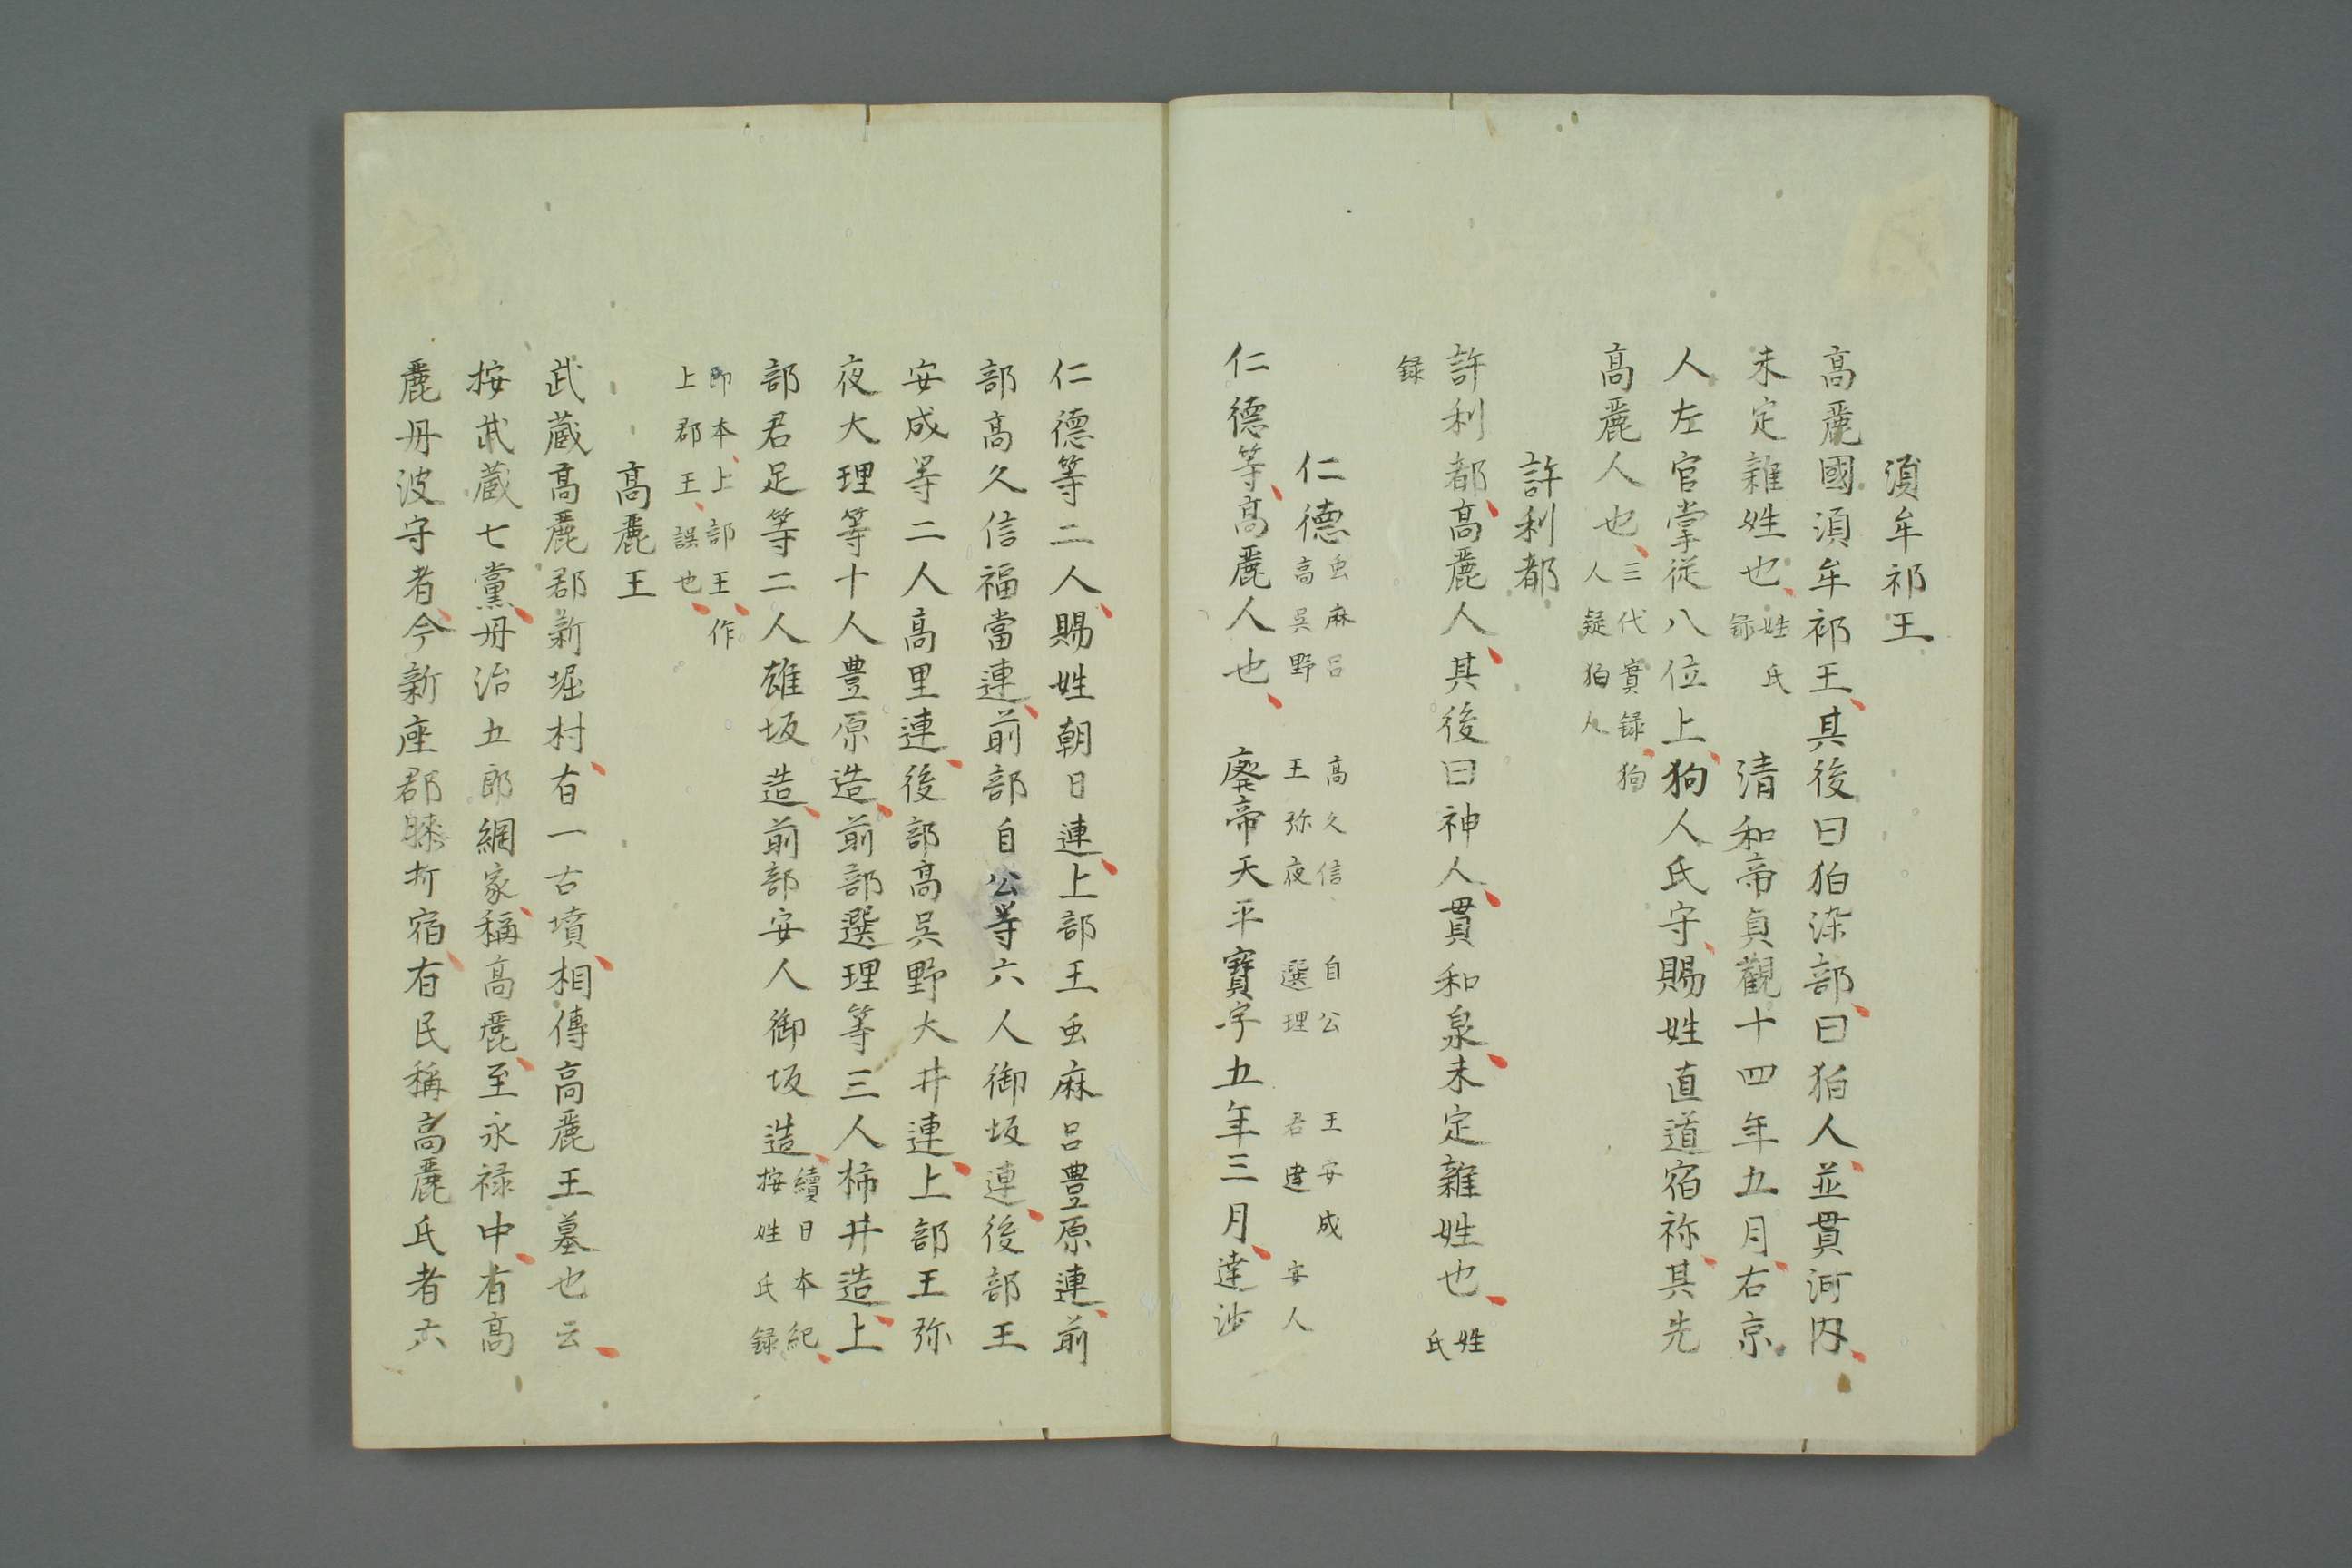 須牟祁王
高麗國須牟祁王其後曰狛染部曰狛人並貫河内
未定雜姓也姓氏録　清和帝貞觀十四年五月右京
人左官掌從八位上狗人氏守賜姓直道宿祢其先
高麗人也三代實録狗人疑狛人
許利都
許利都高麗人其後曰神人貫和泉未定雜姓也姓氏
録
仁德虫麻呂　高久信　自公　王安成
高吳野　王弥夜　選理　君達　安人
仁德等高麗人也　廢帝天平寶字五年三月達沙
仁德等二人賜姓朝日連上部王虫麻呂豊原連前
部高久信福當連前部自公等六人御坂連後部王
安成等二人高里連後部高吳野大井連上部王弥
夜大理等十人豊原造前部選理等三人柿井造上
部君足等二人雄坂造前部安人御坂造續日本紀按姓氏録
印本上部王作上郡王誤也
高麗王
武蔵高麗郡新堀村有一古墳相傳高麗王墓也云
按武蔵七黨丹治五郎網家稱高麗至永禄中有高
麗丹波守者今新座郡膝折宿有民稱高麗氏者六